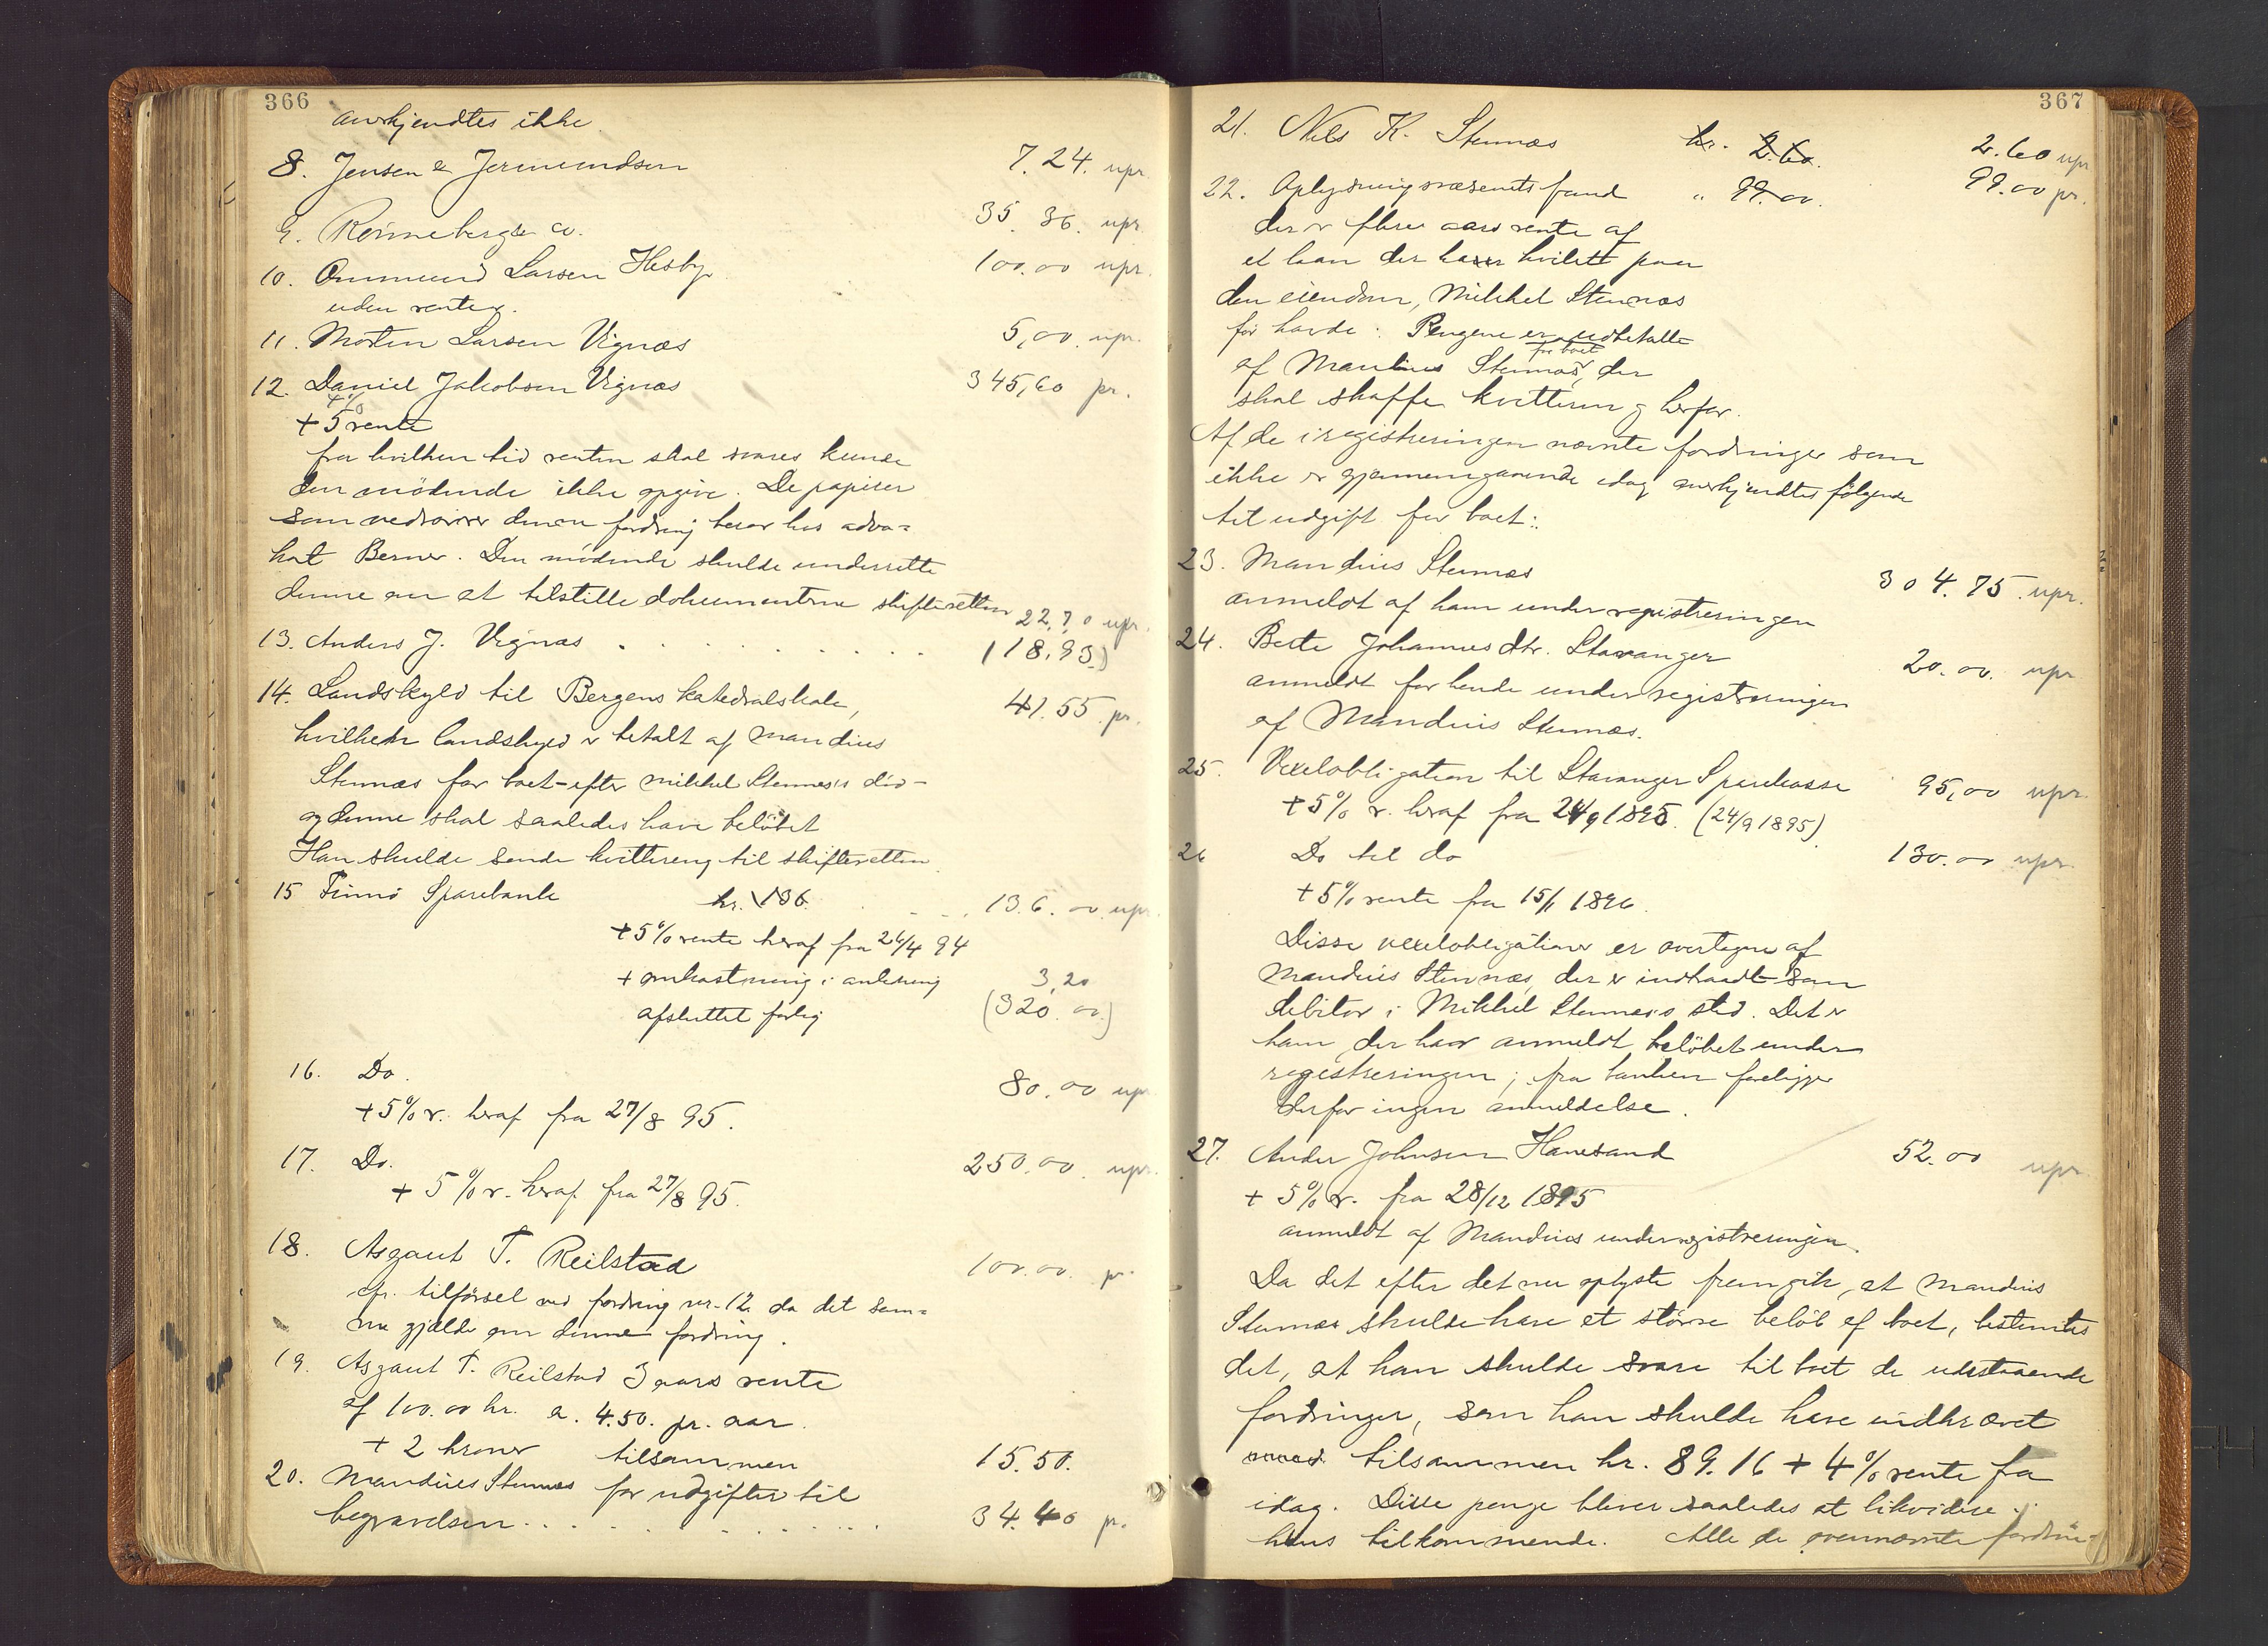 366
anerkjendtes ikke.
8. Jensen & Jermundsen 7.24. upr
9. Rønneberg & Co. 35.36. upr.
10. Ommund Larsen Hesby 100.00 upr.
uden renter.
11. Morten Larsen Vignæs 5,00. upr.
12. Daniel Jakobsen Vignæs 345,60 pr.
4%
+ 5 rente
fra hvilken tid renten skal svares kunde
den mødende ikke opgive. De papirer
som vedrører denne fordring beror hos advo=
kat Berner. Den mødende skulde underrette
denne om at tilstille dokumenterne skifteretten
22,70 upr.
13. Anders J. Vignæs . . . . . . . . (118,93.)
14. Landskyld til Bergens katedralskole, 41.55 pr.
hvilken landskyld er betalt af Mandius
Stennæs for boet - efter Mikkel Stennæs's død -
og denne skal saaledes have beløbet
Han skulde sende kvittering til skifteretten
15 Finnø Sparebank kr. 136. . . . 136.00 upr
+ 5% rente heraf fra 26/4 94
+ omkostning i anledning 3,20
afsluttet forlig (320.00)
16. Do. 80.00 upr
+ 5% r. heraf fra 27/8 95.
17. Do. 250.00 upr.
+ 5% r. heraf fra 27/8 95.
18. Asgaut T. Reilstad 100.00 pr.
cfr. tilførsel ved fordring nr. 12 da det sam=
me gjælder om denne fordring.
19. Asgaut T. Reilstad 3 aars rente
af 100.00 kr. a. 4.50. pr. aar.
+ 2 kroner tilsammen 15.50.
20. Mandius Stennæs for udgifter til
begravelsen . . . . . . . . . 34.40 pr.
367
21. Nils K. Stennæs kr. 2.60. 2.60 upr
22. Oplysningsvæsenets fond " 99.00. 99.00 pr.
der er flere aars rente af
et laan der har hvilett paa
den eiendom, Mikkel Stennæs
før havde. Pengene er udbetalte
for boet
af Mandius Stennæs, der
skal skaffe kvittering herfor.
Af de i registreringen nævnte fordringer som
ikke er gjennemgaaende idag anerkjendtes følgende
til udgift for boet:
23. Mandius Stennæs 304.75. upr.
anmeldt af ham under registreringen
24. Berte Johannesdtr. Stavanger 20.00. upr
anmeldt for hende under registreringen
af Mandius Stennæs.
25. Vexelobligation til Stavanger Sparekasse 95,00 upr.
+ 5% r. heraf fra 24/9 1895. (24/9 1895)
26 Do til do 130.00 upr.
+ 5% rente fra 15/1 1896.
Disse vexelobligationer er overtagne af
Mandius Stennæs, der er indtraadt som
debitor i Mikkel Stennæs's sted. Det er
ham, der har anmeldt beløbet under
registreringen; fra banken foreligger
derfor ingen anmeldelse.
27. Anders Johnsen Hanesand 52.00 upr.
+ 5% r. fra 28/12 1895
anmeldt af Mandius under registreringen.
Da det efter det nu oplyste fremgik, at Mandius
Stennæs skulde have et større beløb af boet, bestemtes
det, at han skulde svare til boet de udestaaende
fordringer, som han skulde have indkrævet
med tilsammen kr. 89.16 + 4% rente fra
idag. Disse penge bliver saaledes at likvidere i
hans tilkommende. Alle de ovennævnte fordrin-